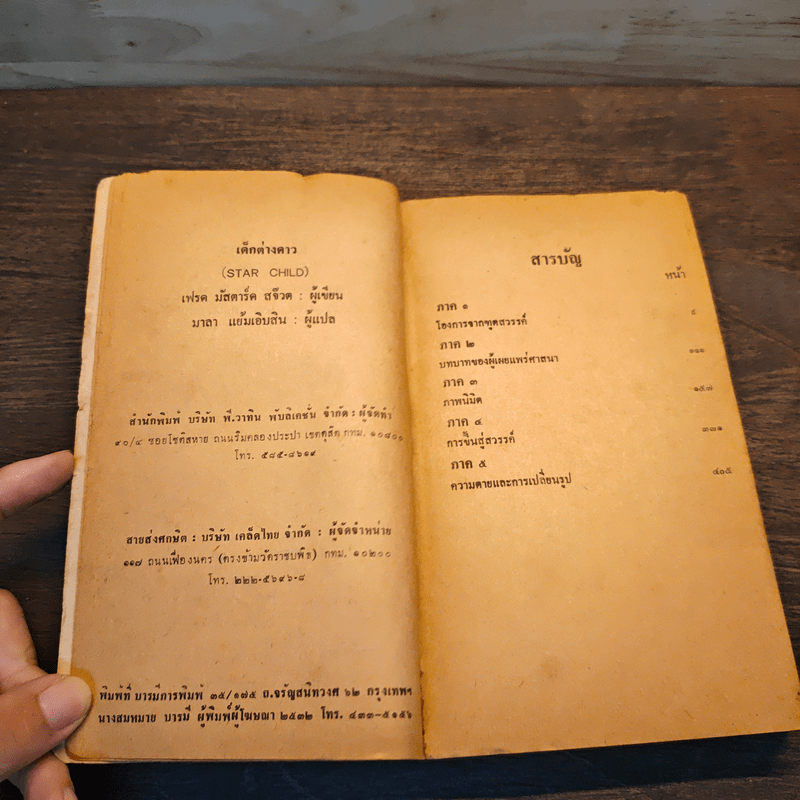 เด็กต่างดาว
(STAR CHILD)
เฟรด มัสตาร์ด สจ๊วต : ผู้เขียน
มาลา แย้มเอิบสิน : ผู้แปล
สำนักพิมพ์ บริษัท พี.วาทิน พับลิเคชั่น จำกัด : ผู้จัดทำ
๙๐/๔ ซอยโชติสหาย ถนนริมคลองประปา เขตดุสิต กทม. ๑๐๘๐๐
โทร. ๕๘๕-๘๖๑๙
สายส่งศึกษิต : บริษัท เคล็ดไทย จำกัด : ผู้จัดจำหน่าย
๑๑๗ ถนนเฟื่องนคร (ตรงข้ามวัดราชบพิธ) กทม. ๑๐๒๐๐
โทร. ๒๒๒-๕๖๙๖-๘
พิมพ์ที่ บารมีการพิมพ์ ๓๕/๑๗๕ ถ.จรัญสนิทวงศ ๖๒ กรุงเทพฯ
นางสมหมาย บารมี ผู้พิมพ์ผู้โฆษณา ๒๕๓๒ โทร. ๔๓๓-๕๑๕๖
สารบัญ
หน้า
ภาค ๑
โองการจากทูตสวรรค์
ภาค ๒
บทบาทของผู้เผยแพร่ศาสนา
ภาค ๓
ภาพนิมิต ๑๕๗
ภาค ๔
การขึ้นสู่สวรรค์ ๓๓๑
ภาค ๕
ความตายและการเปลี่ยนรูป ๔๑๕